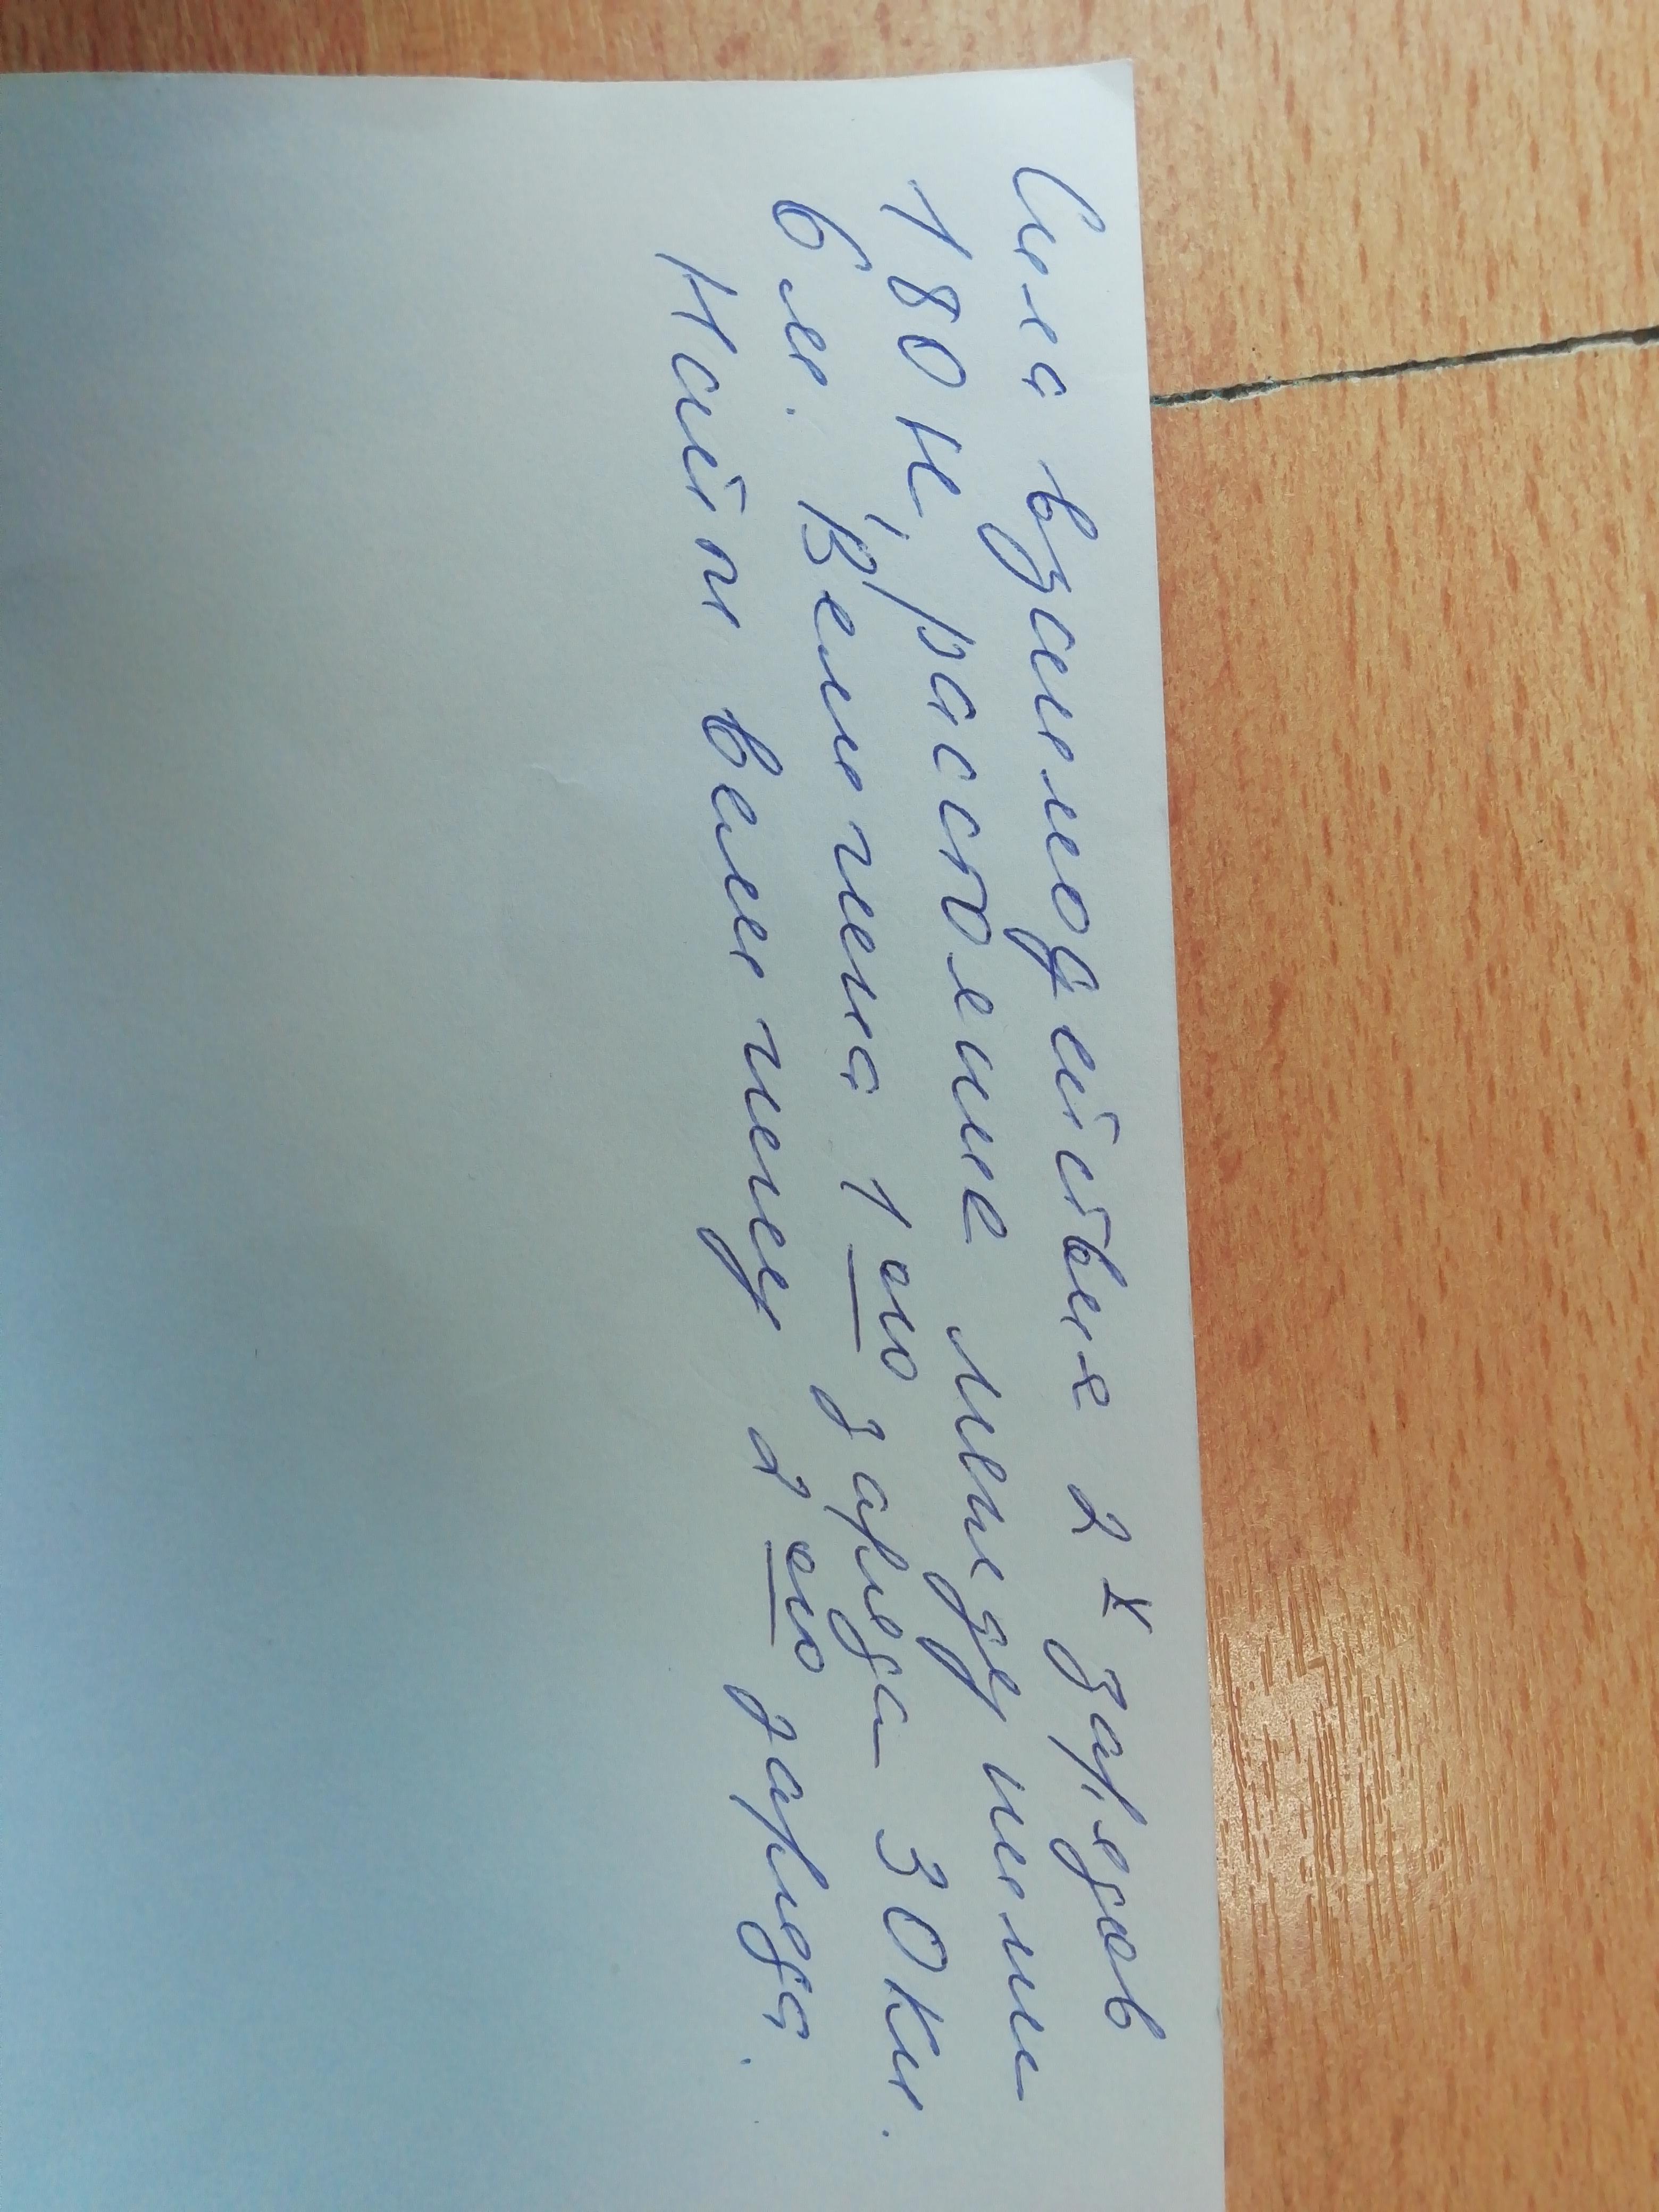 Сила взаимодействия 2х зарядов
180 Н, расстояние между ними
6 м. Величина 1ого заряда 30 Кл.
Найти величину 2ого заряда.